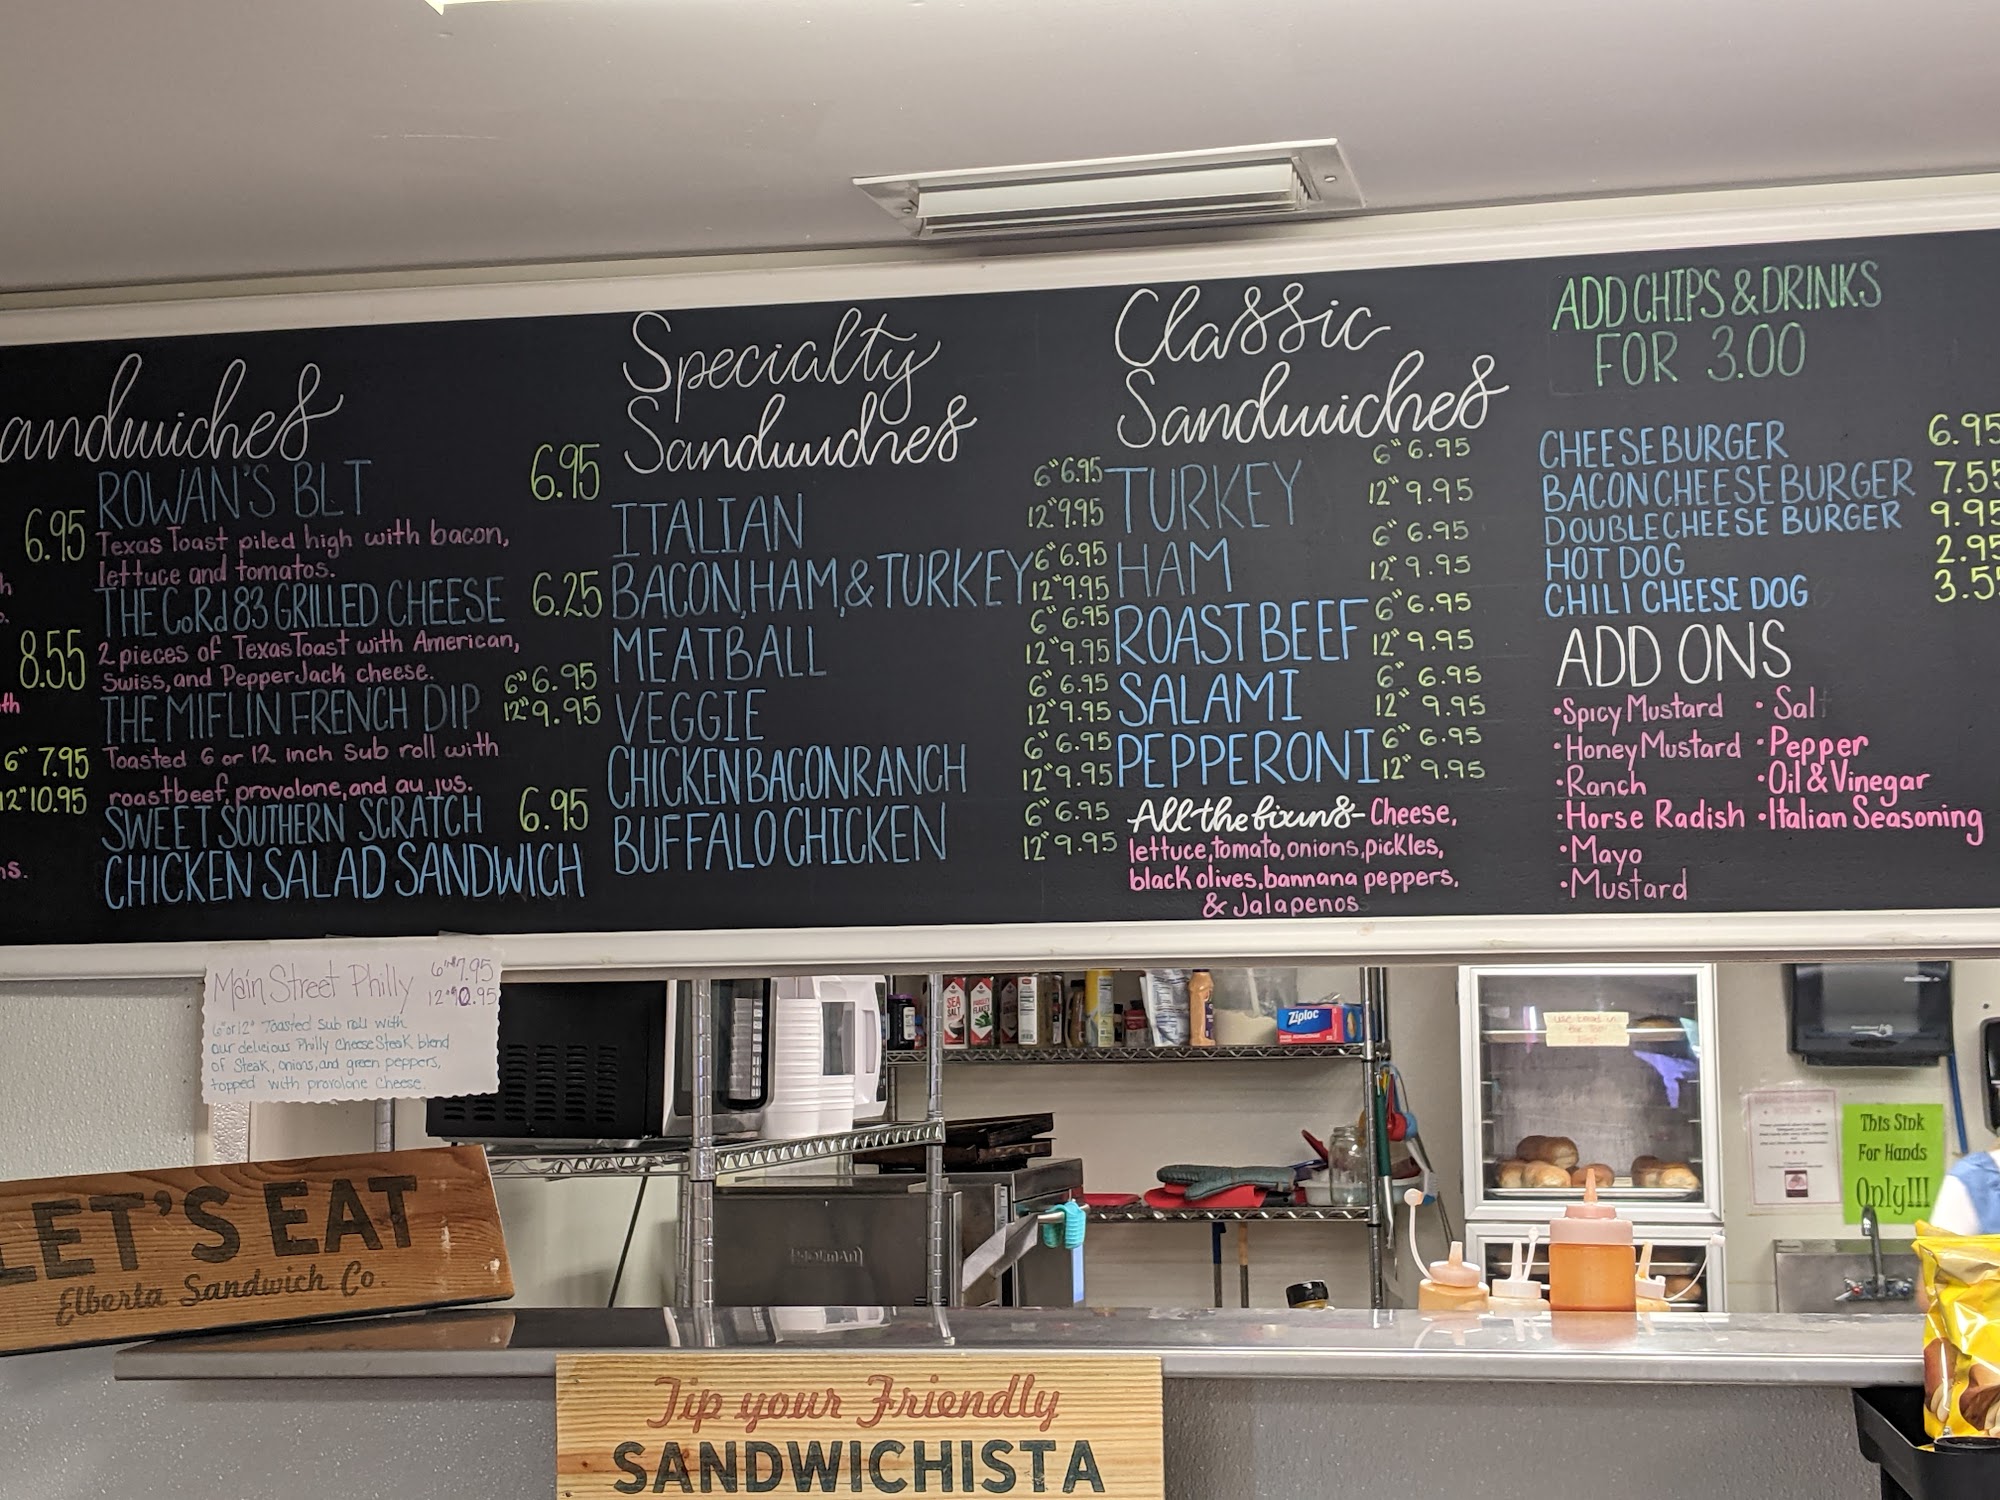 andwiches
6.95
h
8.55
th
6" 7.95
12" 10.95
ns.
ROWAN'S BLT 6.95
Texas Toast piled high with bacon,
lettuce and tomatos.
THE CoRd 83 GRILLED CHEESE 6.25
2 pieces of Texas Toast with American,
Swiss, and Pepper Jack cheese.
THE MIFLIN FRENCH DIP 6" 6.95
12" 9.95
Toasted 6 or 12 inch sub roll with
roastbeef, provolone, and au jus.
SWEET SOUTHERN SCRATCH 6.95
CHICKEN SALAD SANDWICH
Specialty
Sandwiches
ITALIAN 6" 6.95
12" 9.95
BACON, HAM, & TURKEY 6" 6.95
12" 9.95
MEATBALL 6" 6.95
12" 9.95
VEGGIE 6" 6.95
12" 9.95
CHICKEN BACON RANCH 6" 6.95
12" 9.95
BUFFALO CHICKEN 6" 6.95
12" 9.95
Classic
Sandwiches
TURKEY 6" 6.95
12" 9.95
HAM 6" 6.95
12" 9.95
ROAST BEEF 6" 6.95
12" 9.95
SALAMI 6" 6.95
12" 9.95
PEPPERONI 6" 6.95
12" 9.95
All the fixuns- Cheese,
lettuce, tomato, onions, pickles,
black olives, bannana peppers,
& Jalapenos
ADD CHIPS & DRINKS
FOR 3.00
CHEESE BURGER 6.95
BACON CHEESE BURGER 7.55
DOUBLE CHEESE BURGER 9.95
HOT DOG 2.95
CHILI CHEESE DOG 3.5
ADD ONS
•Spicy Mustard
•Honey Mustard
•Ranch
•Horse Radish
•Mayo
•Mustard
•Sal
•Pepper
•Oil & Vinegar
•Italian Seasoning
Main Street Philly 6" 7.95
12" 10.95
6" or 12" Toasted sub roll with
our delicious Philly Cheese Steak blend
of Steak, onions, and green peppers,
topped with provolone Cheese.
SEA
SALT
PARSLEY
FLAKES
Ziploc
This Sink
For Hands
Only!!!
LET'S EAT
Elberta Sandwich Co.
Tip your Friendly
SANDWICHISTA